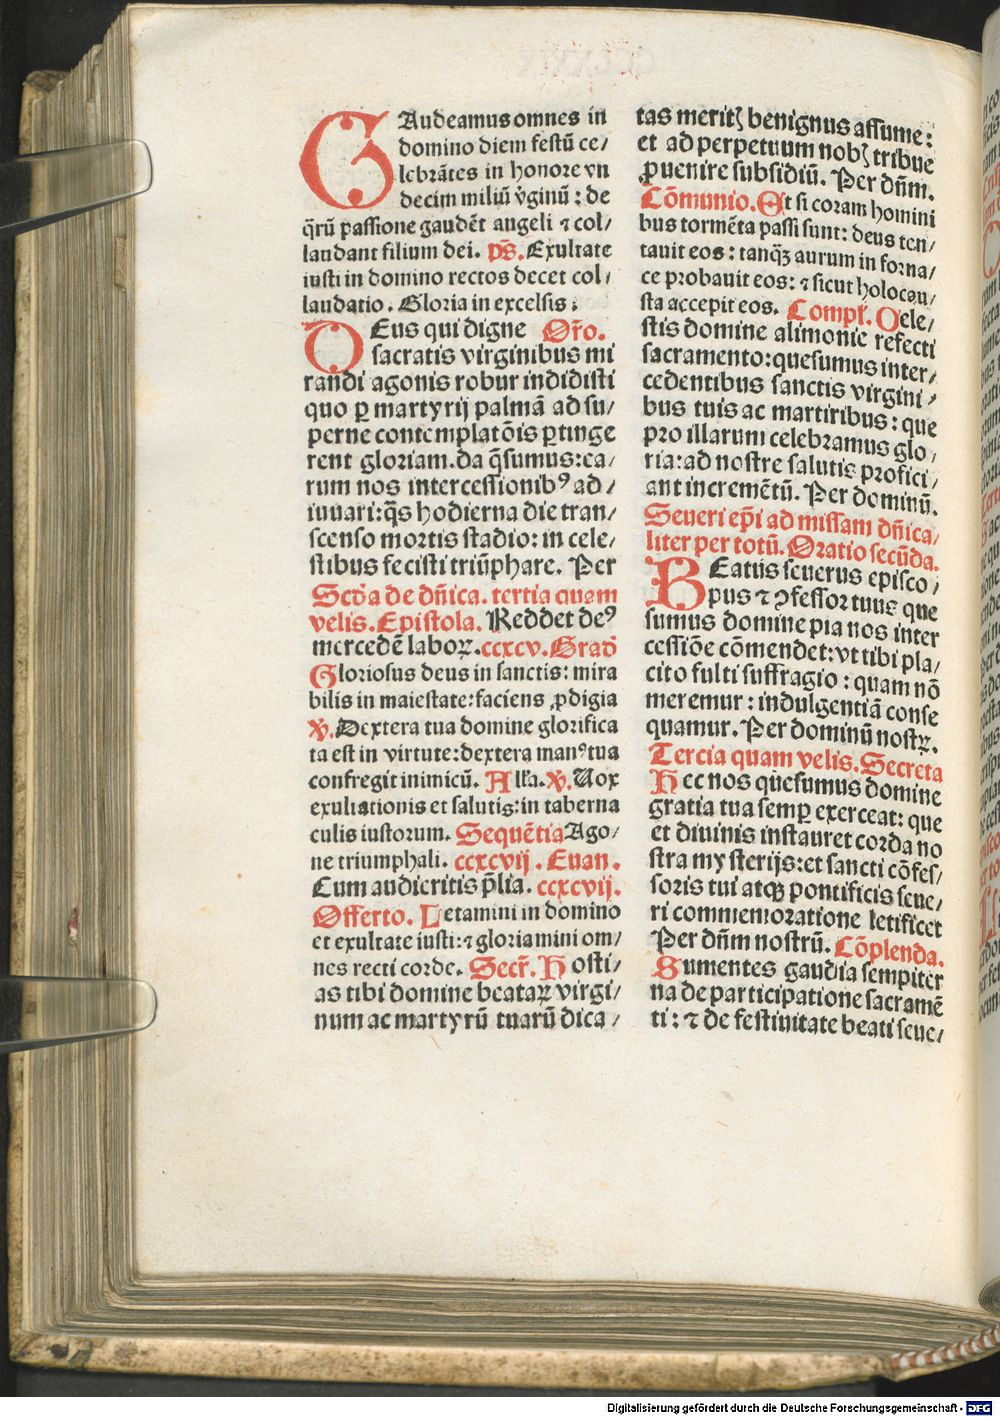 GAudeamus omnes in
domino diem festū ce/
lebrātes in honore vn
decim miliū v̄ginū : de
q̄rū passione gaudēt angeli ⁊ col/
laudant filium dei. ps̄. Exultate
iusti in domino rectos decet col/
laudatio. Gloria in excelsis.
DEus qui digne Or̄o.
sacratis virginibus mi
randi agonis robur indidisti
quo ꝑ martyrij palmā ad su/
perne contemplatōis ꝑtinge
rent gloriam. da q̄sumus: ea/
rum nos intercessionibꝰ ad/
iuuari: q̄s hodierna die tran/
scenso mortis stadio: in cele/
stibus fecisti triūphare. Per
Scd̄a de dn̄ica. tertia quam
velis. Epistola. Reddet deꝰ
mercedē laboꝝ. ccxcv. Grad̄
Gloriosus deus in sanctis: mira
bilis in maiestate: faciens ꝓdigia
℣. Dextera tua domine glorifica
ta est in virtute: dextera manꝰ tua
confregit inimicū. Alľa. ℣. Uox
exultationis et salutis: in taberna
culis iustorum. Sequētia Ago/
ne triumphali. ccxcvij. Euan.
Cum audieritis p̄lia. ccxcvij.
Offerto. Letamini in domino
et exultate iusti: ⁊ gloriamini om/
nes recti corde. Secr̄. Hosti/
as tibi domine beataꝝ virgi/
num ac martyrū tuarū dica/
tas meritꝭ benignus assume:
et ad perpetuum nobꝭ tribue
ꝓuenire subsidiū. Per dn̄m.
Cōmunio. Et si coram homini
bus tormēta passi sunt: deus ten/
tauit eos: tanqꝫ aurum in forna/
ce probauit eos: ⁊ sicut holocau/
sta accepit eos. Compl̄. Cele/
stis domine alimonie refecti
sacramento: quesumus inter/
cedentibus sanctis virgini/
bus tuis ac martiribus: que
pro illarum celebramus glo/
ria: ad nostre salutis profici/
ant incremētū. Per dominū.
Seueri ep̄i ad missam dn̄ica/
liter per totū. Oratio secūda.
BEatus seuerus episco/
pus ⁊ ꝯfessor tuus que
sumus domine pia nos inter
cessiōe cōmendet: vt tibi pla/
cito fulti suffragio: quam nō
meremur: indulgentiā conse
quamur. Per dominū nostꝝ.
Tercia quam velis. Secreta
Hec nos quesumus domine
gratia tua semꝑ exerceat: que
et diuinis instauret corda no
stra mysterijs: et sancti cōfes/
soris tui atqꝫ pontificis seue/
ri commemoratione letificet
Per dn̄m nostrū. Cōplenda.
Sumentes gaudia sempiter
na de participatione sacramē
ti: ⁊ de festiuitate beati seue/
Digitalisierung gefördert durch die Deutsche Forschungsgemeinschaft - DFG